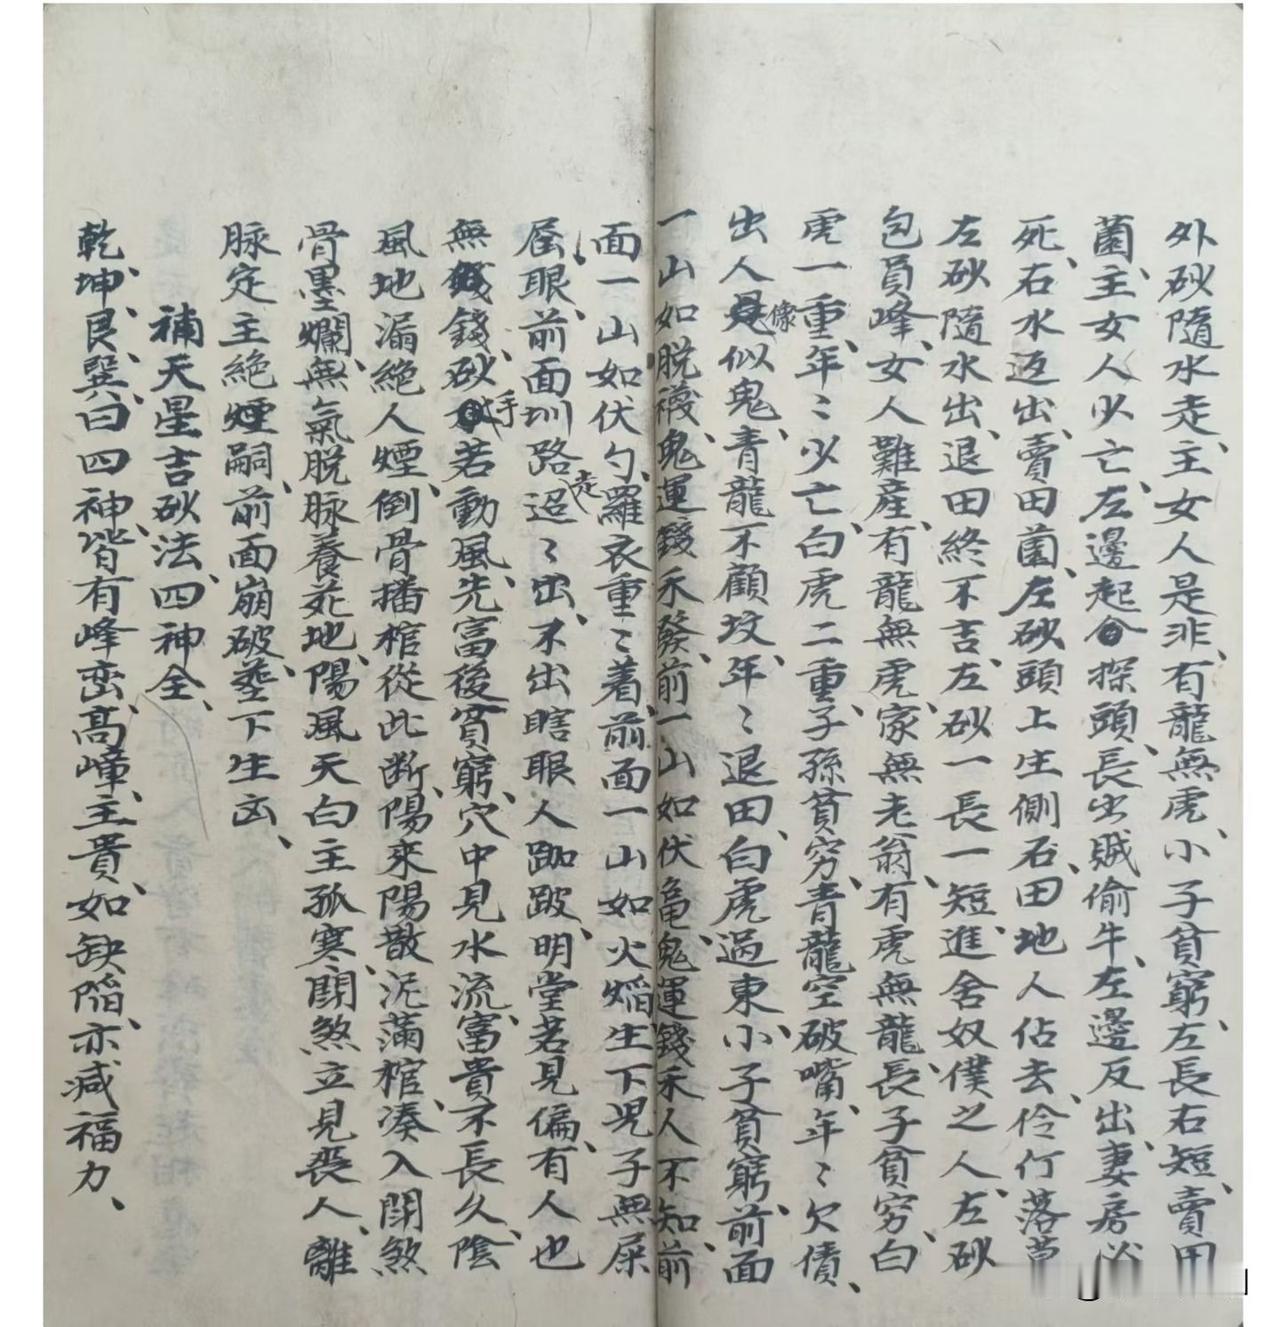 外砂隨水走、主女人是非、有龍無虎、小子貧窮、左長右短、賣田
薗、主女人少亡、左邊起探頭、長出賊偷牛、左邊反出、妻房必
死、右水返出、賣田薗、左砂頭上生側石、田地人佔去、伶仃落
左砂隨水出、退田終不吉、左砂一長一短、進舍奴僕之人、左砂
包員峰、女人難產、有龍無虎、家無老翁、有虎無龍、長子貧穷、白
虎一重、年〻少亡、白虎二重、子孫貧穷、青龍空破嘴、年〻欠債、
出人像似鬼、青龍不顧坟、年〻退田、白虎過東、小子貧窮、前面
一山如脱襪、鬼運錢禾發、前一山如伏龜、鬼運錢禾人不知、前
面一山如伏勺、羅衣重〻着、前面一山如火焰、生下児子無屎
屈眼、前面圳路走迢〻出、不出瞎眼人跏跛、明堂若見偏、有人也
無錢、砂手若動風、先富後貧窮、穴中見水流、富貴不長久、陰
風地漏絶人煙、倒骨播棺從此断、陽來陽散泥滿棺、凑入閗煞
骨黑爛、無氣脱脉養死地、陽風天白主孤寒、閗煞立見喪人、離
脉定主絕煙嗣、前面崩破、塟下生凶、
補天星吉砂法、四神全、
乾坤、艮巽、曰四神、皆有峰巒、高嶂、主貴、如缺陷、亦减福力、